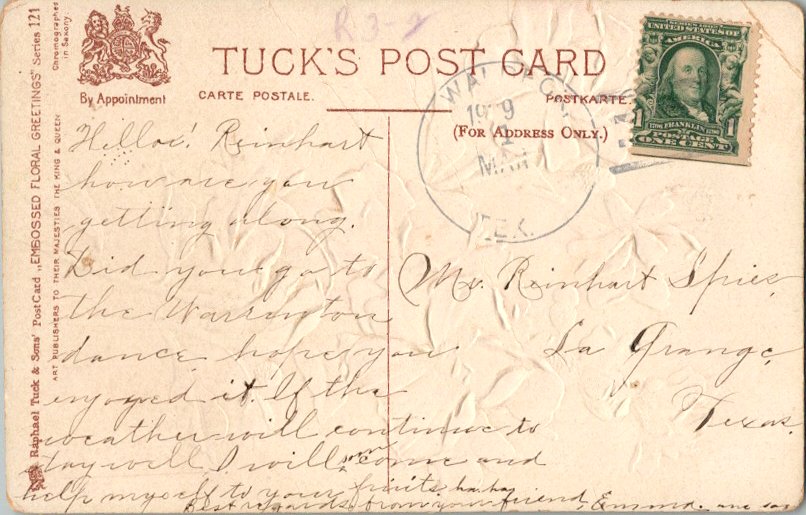 R3-2
TUCK'S POST CARD
By Appointment
CARTE POSTALE.
POSTKARTE.
(FOR ADDRESS ONLY.)
UNITED STATES OF
AMERICA
1 FRANKLIN 1
POSTAGE
ONE CENT
MAY
TEX.
Raphael Tuck & Sons' Post Card „EMBOSSED FLORAL GREETINGS" Series 121
ART PUBLISHERS TO THEIR MAJESTIES THE KING & QUEEN
Chromographed
in Saxony
Hello! Reinhart
how are you
getting along.
Did you go to
the Warrenton
dance hope you
enjoyed it. If the
weather will continue to
stay well I will soon come and
help myself to your fruits ha ha
Best regards from your friend
Mr. Reinhart Spies,
La Grange,
Texas.